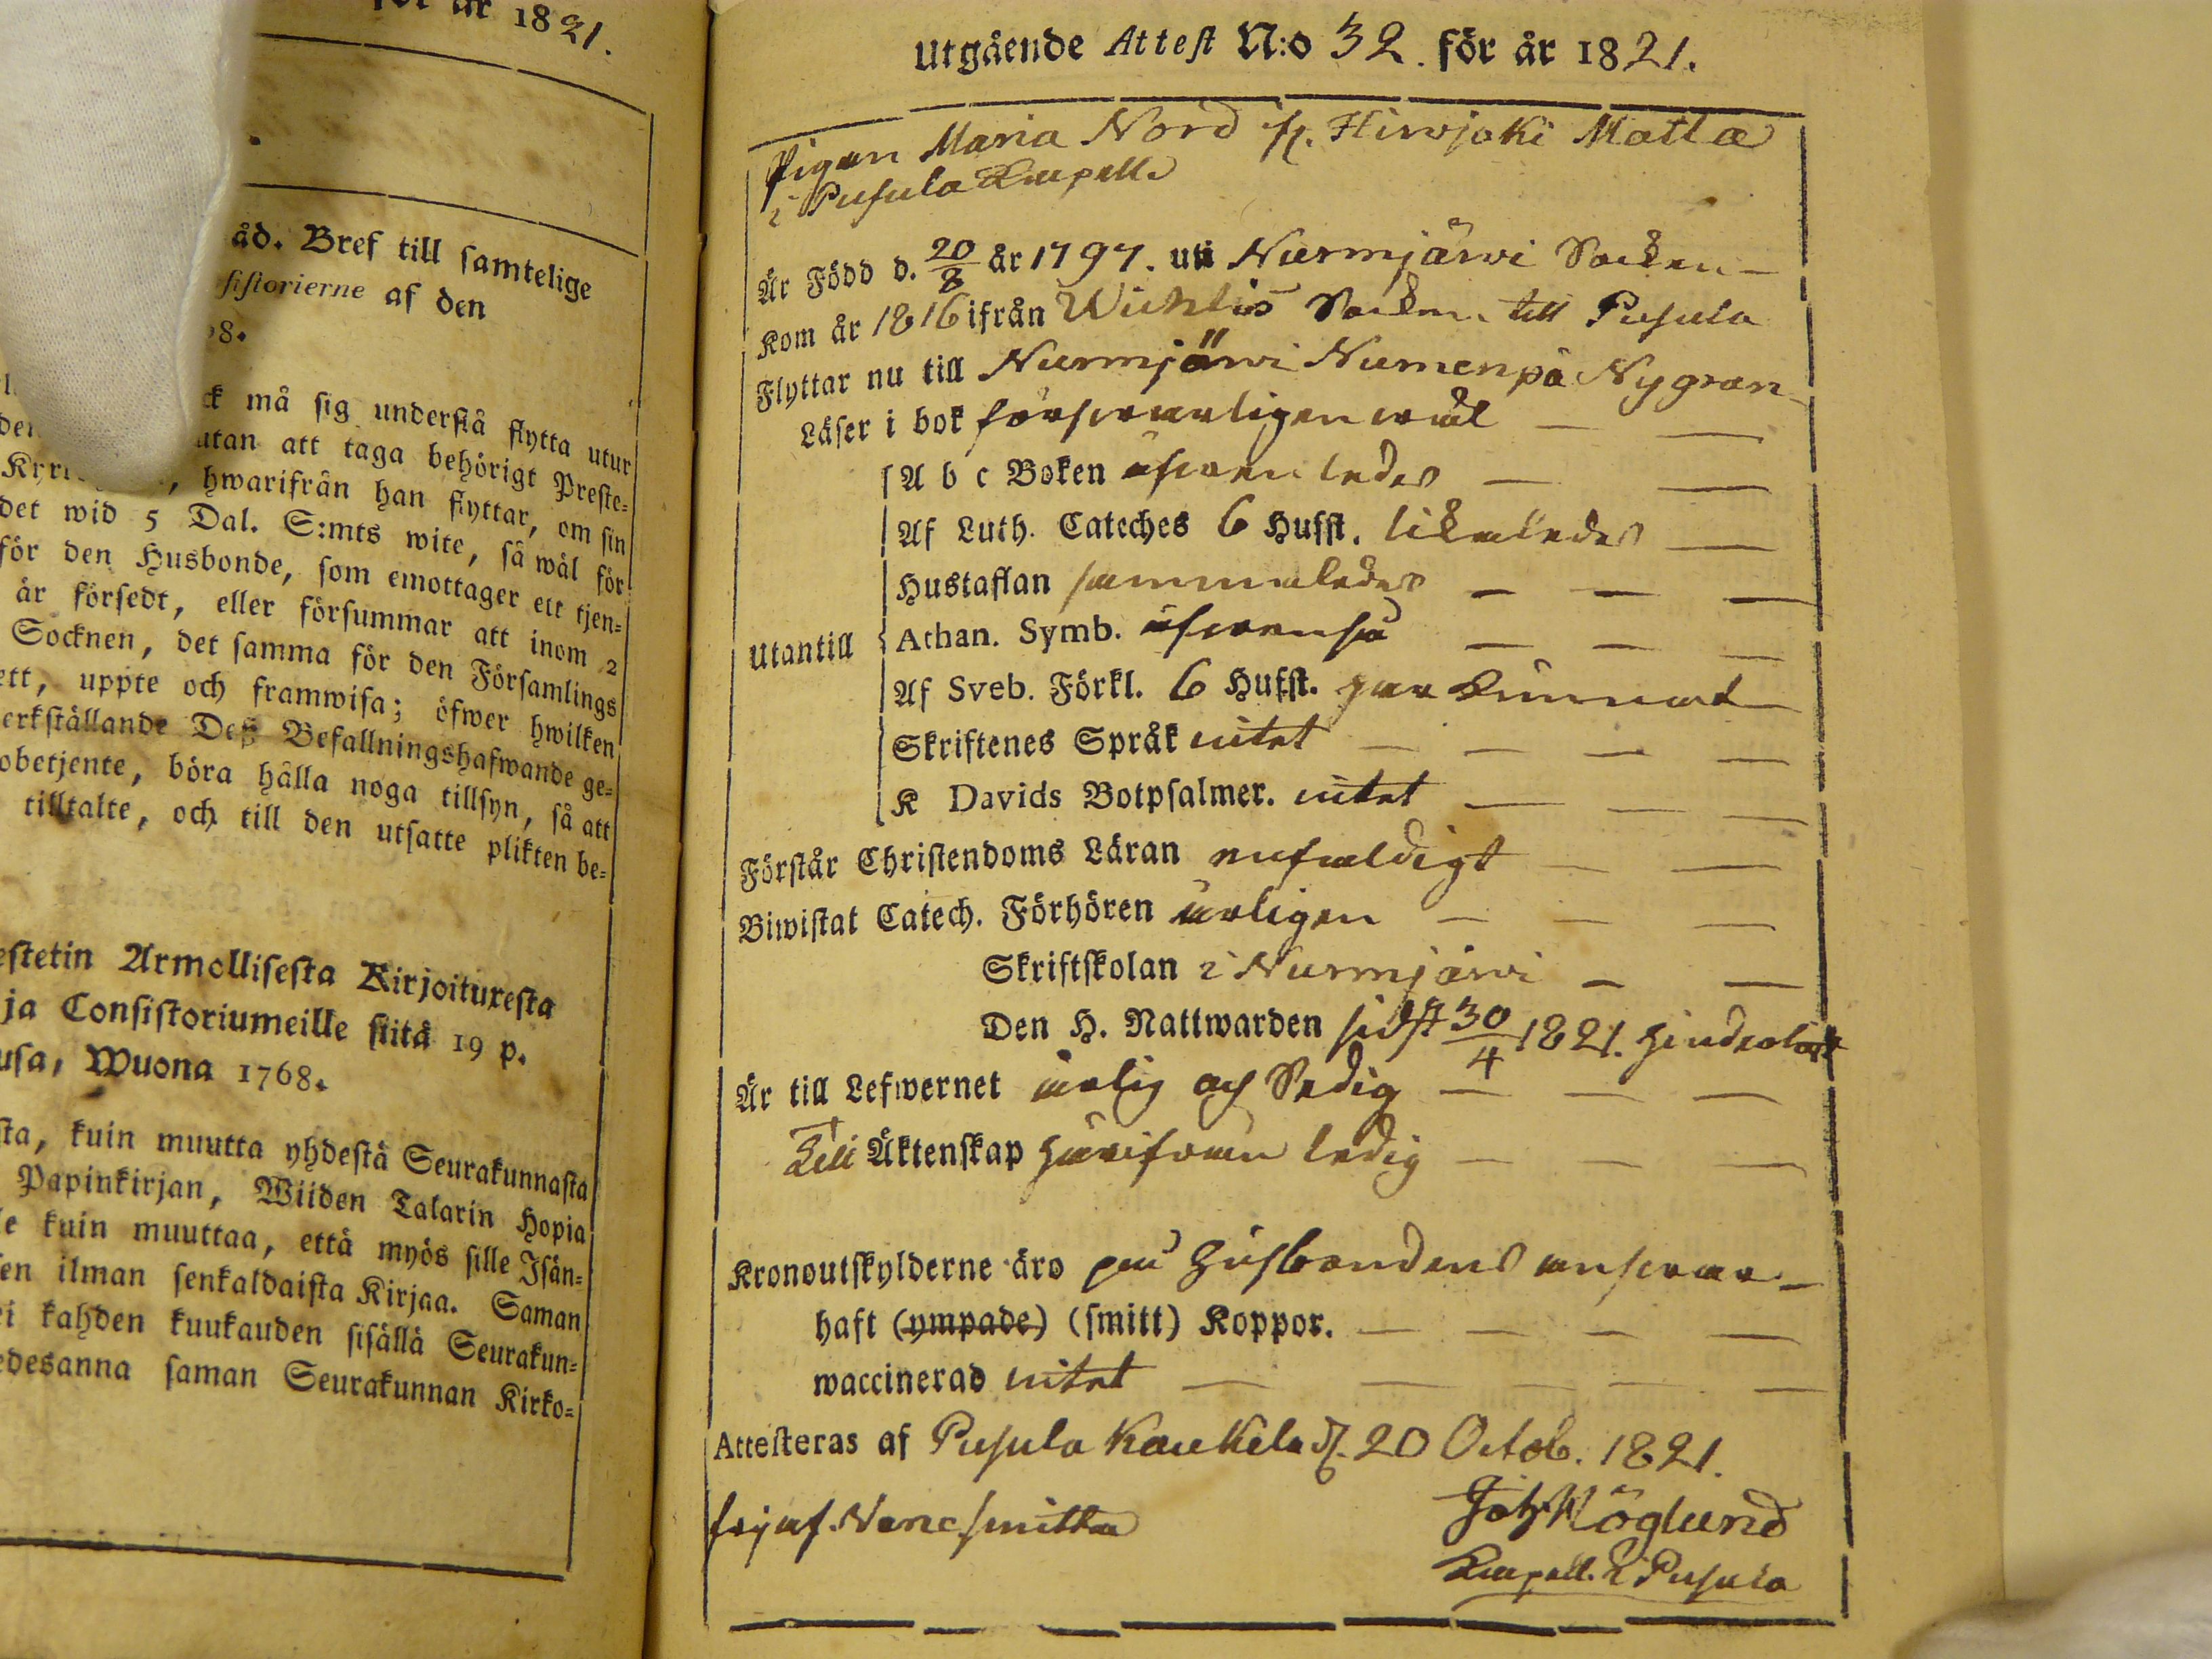 för år 1821.
åd. Bref till samtelige
sistorierne af den
8.
ck må sig understå flytta utur
utan att taga behörigt Preste-
, hwarifrån han flyttar, om sin
det wid 5 Dal. S:mts wite, så wäl för
för den Husbonde, som emottager ett tjen-
är försedt, eller försummar att inom 2
Socknen, det samma för den Församlings
ett, uppte och framwisa; öfwer hwilken
erkställande Deß Befallningshafwande ge-
obetjente, böra hålla noga tillsyn, så att
tilltalte, och till den utsatte plikten be-
estetin Armollisesta Kirjoituxesta
ja Consistoriumeille siitä 19 p.
usa, Wuona 1768.
sta, kuin muutta yhdestä Seurakunnasta
Papinkirjan, Wiiden Talarin Hopia
le kuin muuttaa, että myös sille Isän-
en ilman senkaldaista Kirjaa. Saman
ei kahden kuukauden sisällä Seurakun-
edesanna saman Seurakunnan Kirko-
Utgående Attest N:o 32. för år 1821.
Pigan Maria Nord fr. Hirwjoki Matla
i Pusula Kapell
Är Född d. 20/8 år 1797. uti Nurmjärwi Socken
Kom år 1816 ifrån Wichtis Socken till Pusula
Flyttar nu till Nurmjärwi Numenpä Nygran
Läser i bok försvarligen wäl
A b c Boken äfvenledes
Af Luth. Cateches 6 Hufst. likaledes
Hustaflan sammaledes
Utantill Athan. Symb. äfvenså
Af Sveb. Förkl. 6 Hufst.
Skriftenes Språk intet
K Davids Botpsalmer. intet
Förstår Christendoms Läran enfaldigt
Biwistat Catech. Förhören årligen
Skriftskolan i Nurmjärwi
Den H. Nattwarden sidst 30/4 1821. hinderlöst
Är till Lefwernet ärlig och Sedig
till Äktenskap härifrån ledig
Kronoutskylderne äro på Husbondens ansvar
haft (ympade) (smitt) Koppor.
waccinerad intet
Attesteras af Pusula Kaukela d. 20 Octob. 1821.
fri af Vene. smitta
Joh. Höglund
Kapell. i Pusula